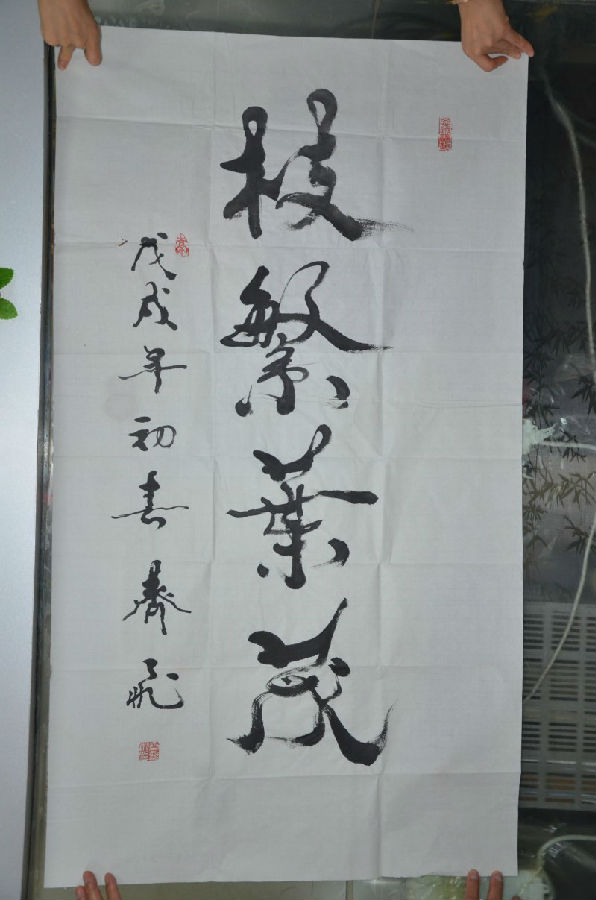 枝繁葉茂
戊戌年初春齊飛